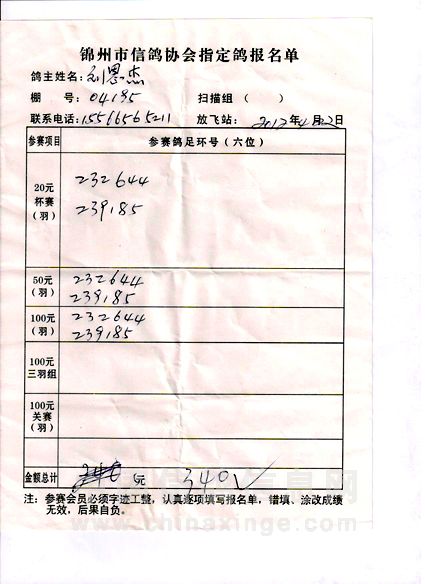 锦州市信鸽协会指定鸽报名单
鸽主姓名: 刘恩杰
棚 号: 04195 扫描组 ( )
联系电话: 15565565211 放飞站: 2012年4月22日
参赛项目 参赛鸽足环号 (六位)
20元
杯赛
(羽)
232644
239185
50元
(羽)
232644
239185
100元
(羽)
232644
239185
100元
三羽组
100元
关赛
(羽)
金额总计 元 340√
注: 参赛会员必须字迹工整, 认真逐项填写报名单, 错填、涂改成绩
无效, 后果自负。
www.chinaxinge.com